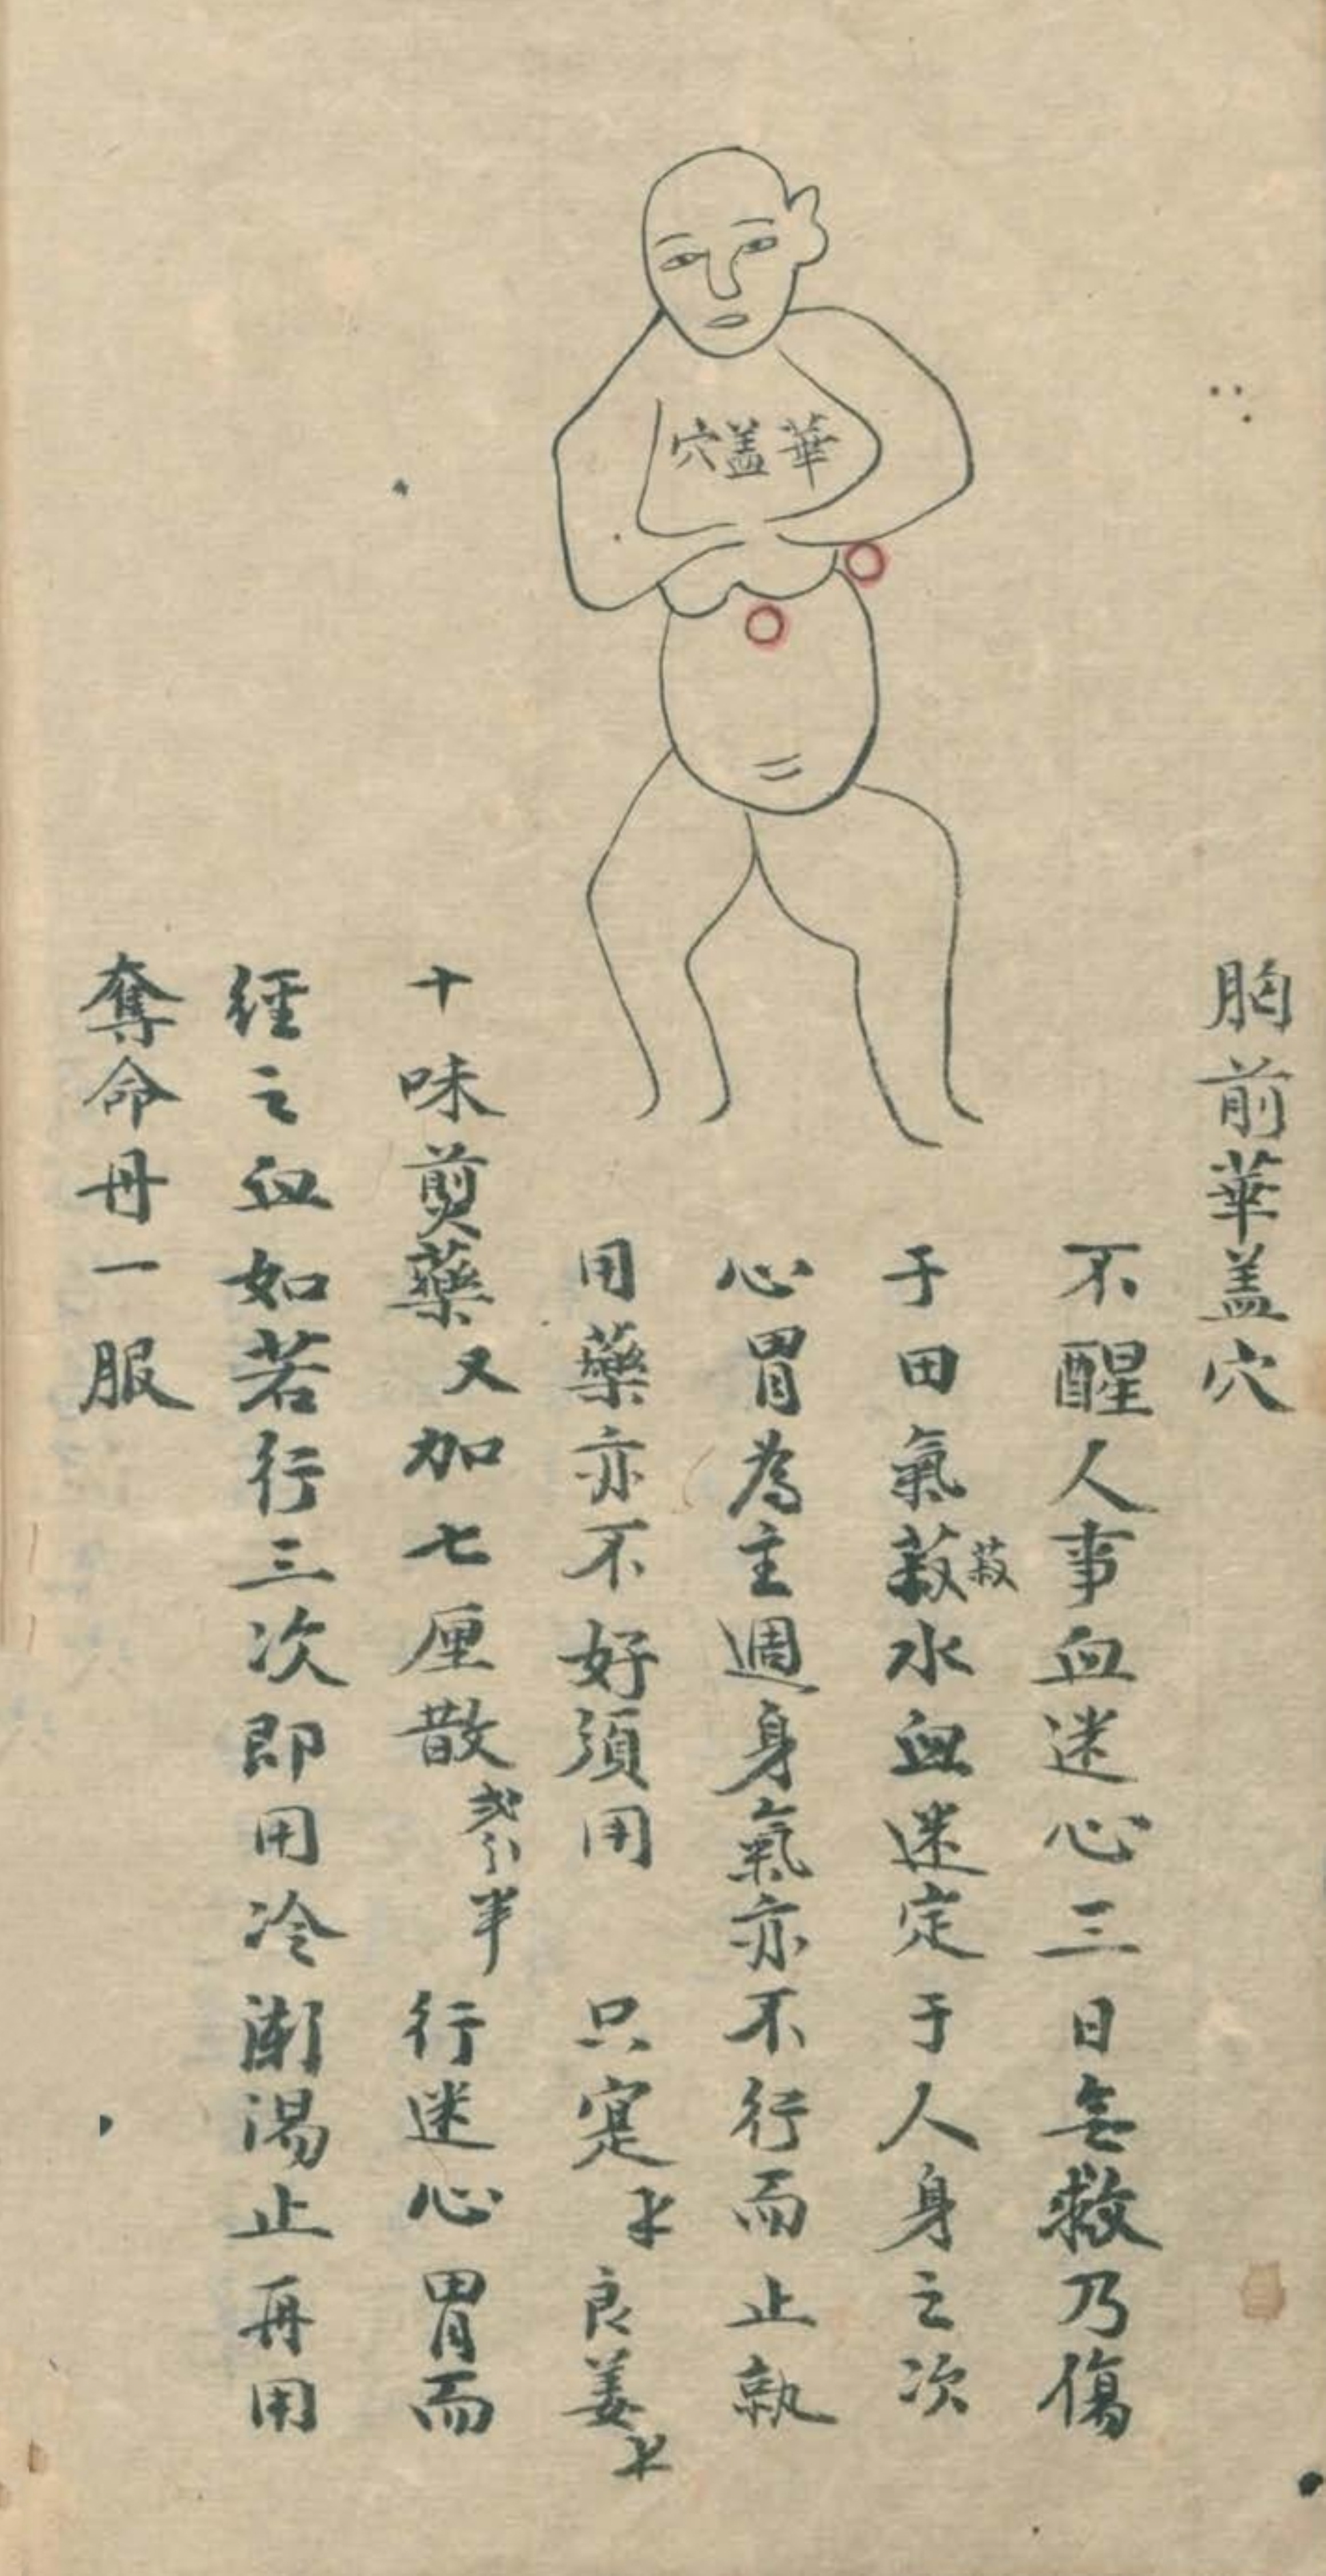 胸前華盖穴
華盖穴
不醒人事血迷心三日無救乃傷
于田氣菽水血迷定于人身之次
菽
心胃為主週身氣亦不行而止執
用藥亦不好須用 只寔 良姜
十味煎藥又加七厘散 半 行迷心胃而
經之血如若行三次即用冷 湯止再用
奪命丹一服